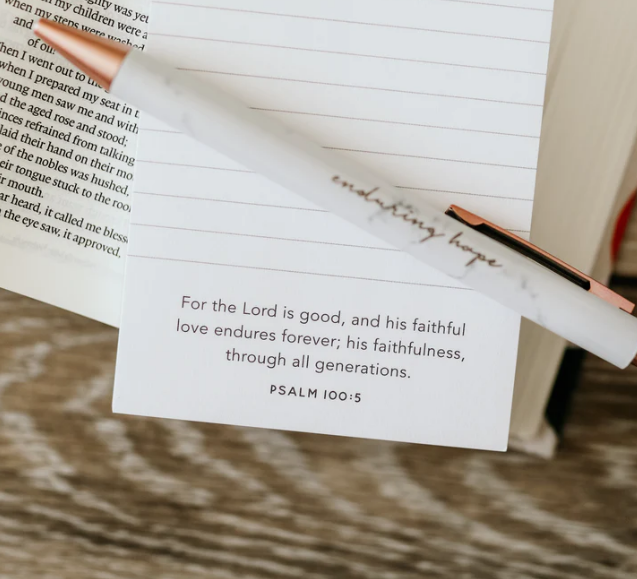 ghty was yet
my children were a
when my steps were washed
and
of oil
hen I went out to the
when I prepared my seat in t
young men saw me and with
d the aged rose and stood;
inces refrained from talking
laid their hand on their mo
e of the nobles was hushed,
eir tongue stuck to the roo
ir mouth.
ar heard, it called me bless
the eye saw, it approved.
enduring hope
For the Lord is good, and his faithful
love endures forever; his faithfulness,
through all generations.
PSALM 100:5